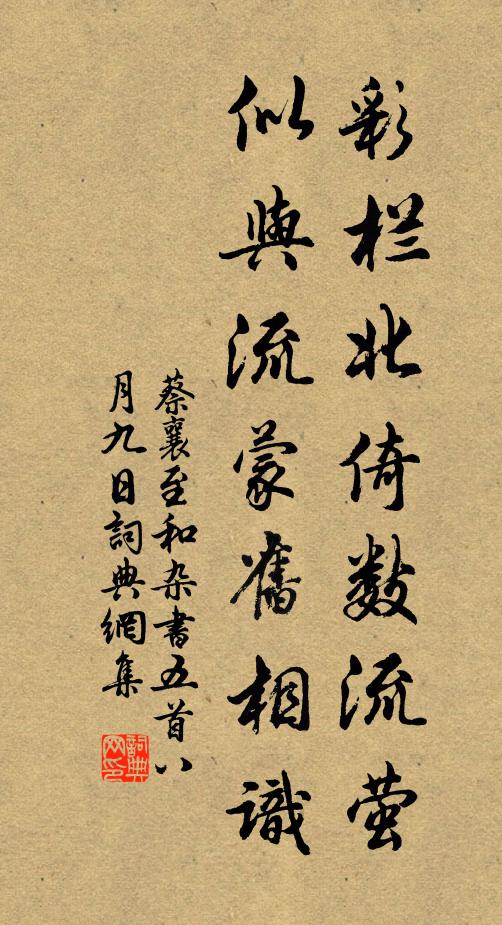 彩栏北倚数流萤
似與流蒙舊相識
蔡襄至和杂書五首八
月九日詞典網集
詞典
网印